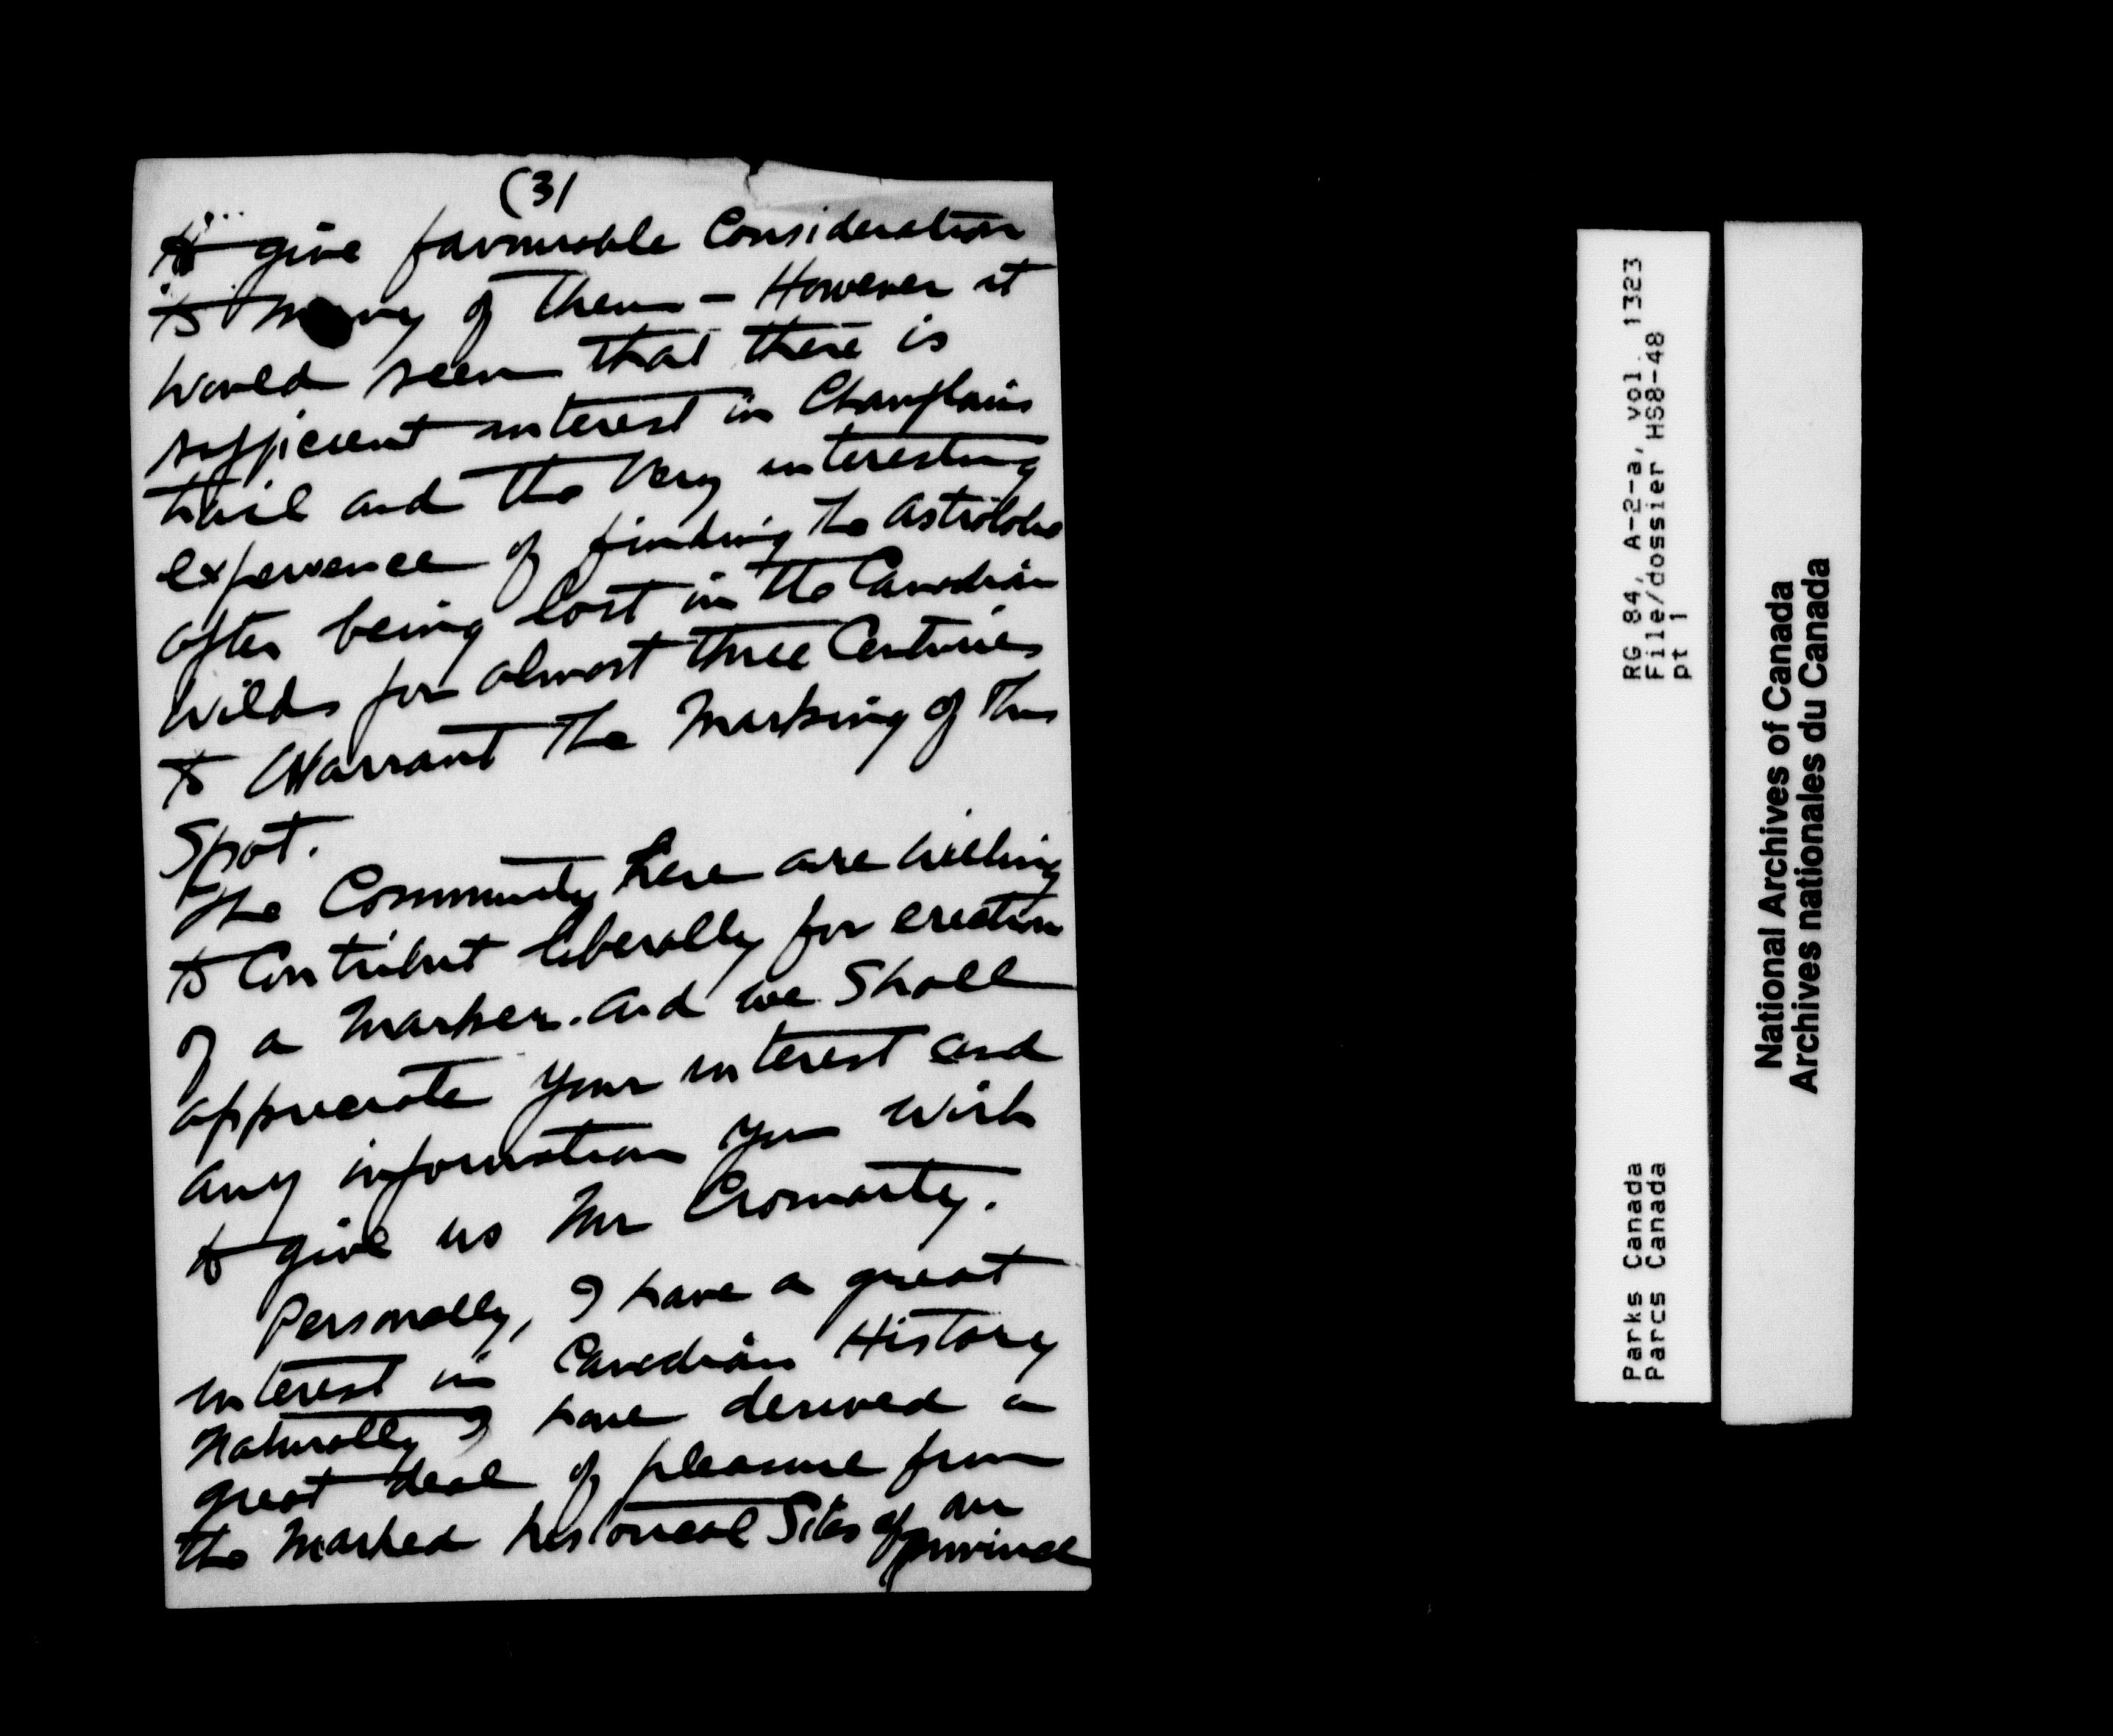 (3)
to give favourable Consideration
to many of them - However it
would seem that there is
sufficient interest in Champlains
trail and the very interesting
experience of finding the astrolobe
after being lost in the Canadian
wilds for almost three Centuries
to Warrant the Marking of this
Spot.
The Community here are willing
to Contribut liberally for erection
of a Marker. and we Shall
appreciate your interest and
any information you wish
to give us Mr Cromarty.
Personally, I have a great
interest in Canadian History
Naturally I have derived a
great deal of pleasure from
the Marked historical Sites of our
province
RG 84, A-2-a, vol. 1323
File/dossier HS8-48
pt 1
Parks Canada
Parcs Canada
National Archives of Canada
Archives nationales du Canada